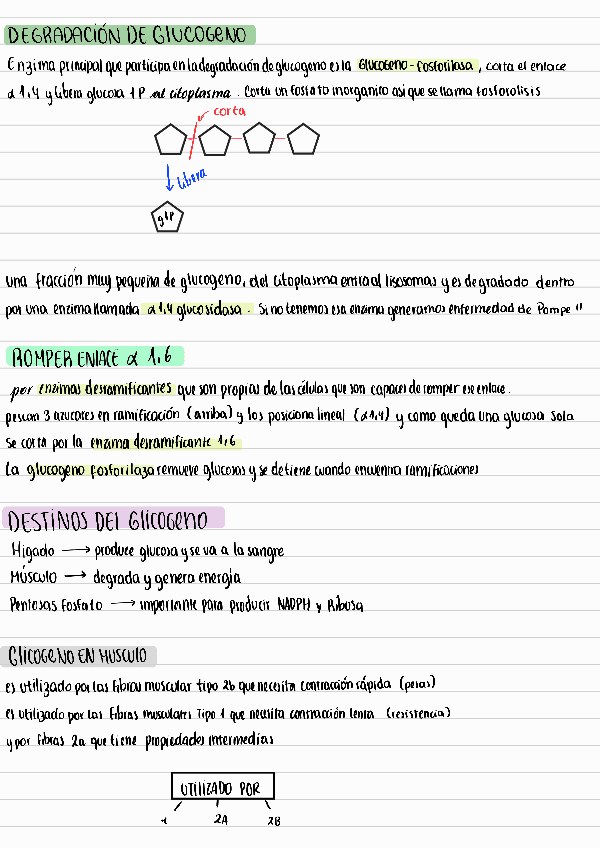 DEGRADACIÓN DE GLUCOGENO
Enzima principal que participa en la degradación de glucogeno es la Glucogeno-fosforilasa, corta el enlace
α 1,4 y libera glucosa 1P al citoplasma. Corta un fosfato inorganico asi que se llama fosforolisis
corta
libera
g1P
una fracción muy pequeña de glucogeno, del citoplasma entra al lisosomas y es degradado dentro
por una enzima llamada α 1,4 glucosidasa. Si no tenemos esa enzima generamos enfermedad de Pompe II
ROMPER ENLACE α 1,6
por enzimas desramificantes que son propias de las células que son capaces de romper ese enlace.
pescan 3 azucares en ramificación (arriba) y los posiciona lineal (α1,4) y como queda una glucosa sola
se corta por la enzima desramificante 1,6
La glucogeno fosforilaza remueve glucosas y se detiene cuando encuentra ramificaciones
DESTINOS DEL GLICOGENO
Higado → produce glucosa y se va a la sangre
MÚSCULO → degrada y genera energia
Pentosas fosfato → importante para producir NADPH y Ribosa
GLICOGENO EN MUSCULO
es utilizado por las fibras muscular tipo 2b que necesita contracción rápida (pesas)
es utilizado por las fibras musculares tipo 1 que necesita contracción lenta (resistencia)
y por fibras 2a que tiene propiedades intermedias
UTILIZADO POR
1 2A 2B